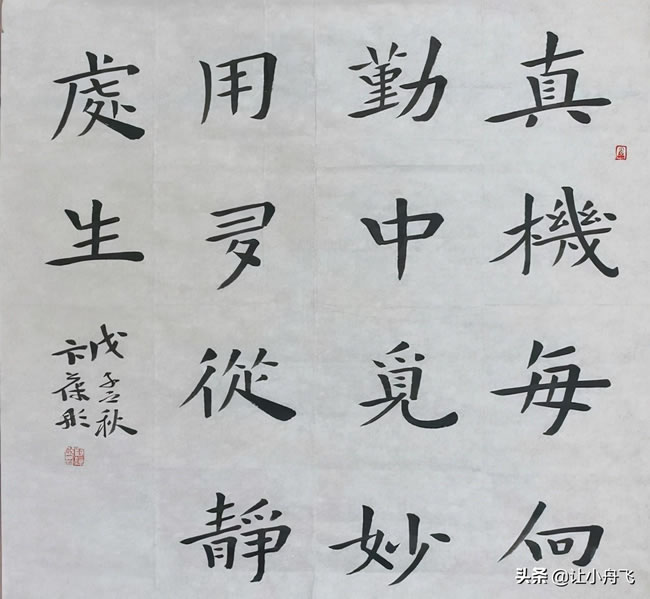 真機每向
勤中覓妙
用多從靜
處生
戊子秋
卞葆
头条 @让小舟飞